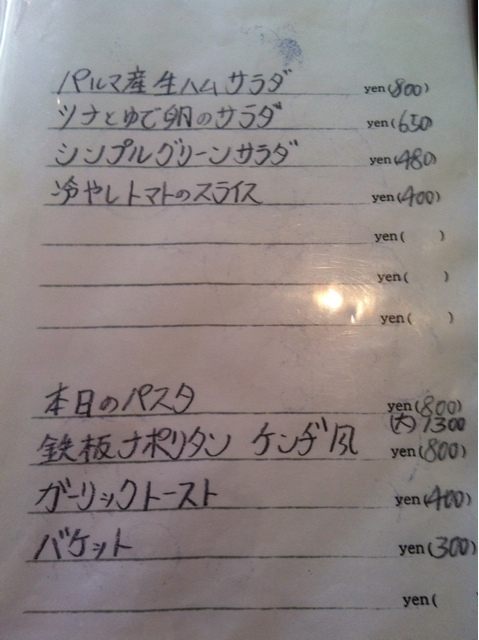 パルマ産生ハムサラダ yen(800)
ツナとゆで卵のサラダ yen(650)
シンプルグリーンサラダ yen(480)
冷やしトマトのスライス yen(400)
yen( )
yen( )
yen( )
本日のパスタ yen(800)
(大)1300
鉄板ナポリタン ケンヂ風 yen(800)
ガーリックトースト yen(400)
バケット yen(300)
yen(